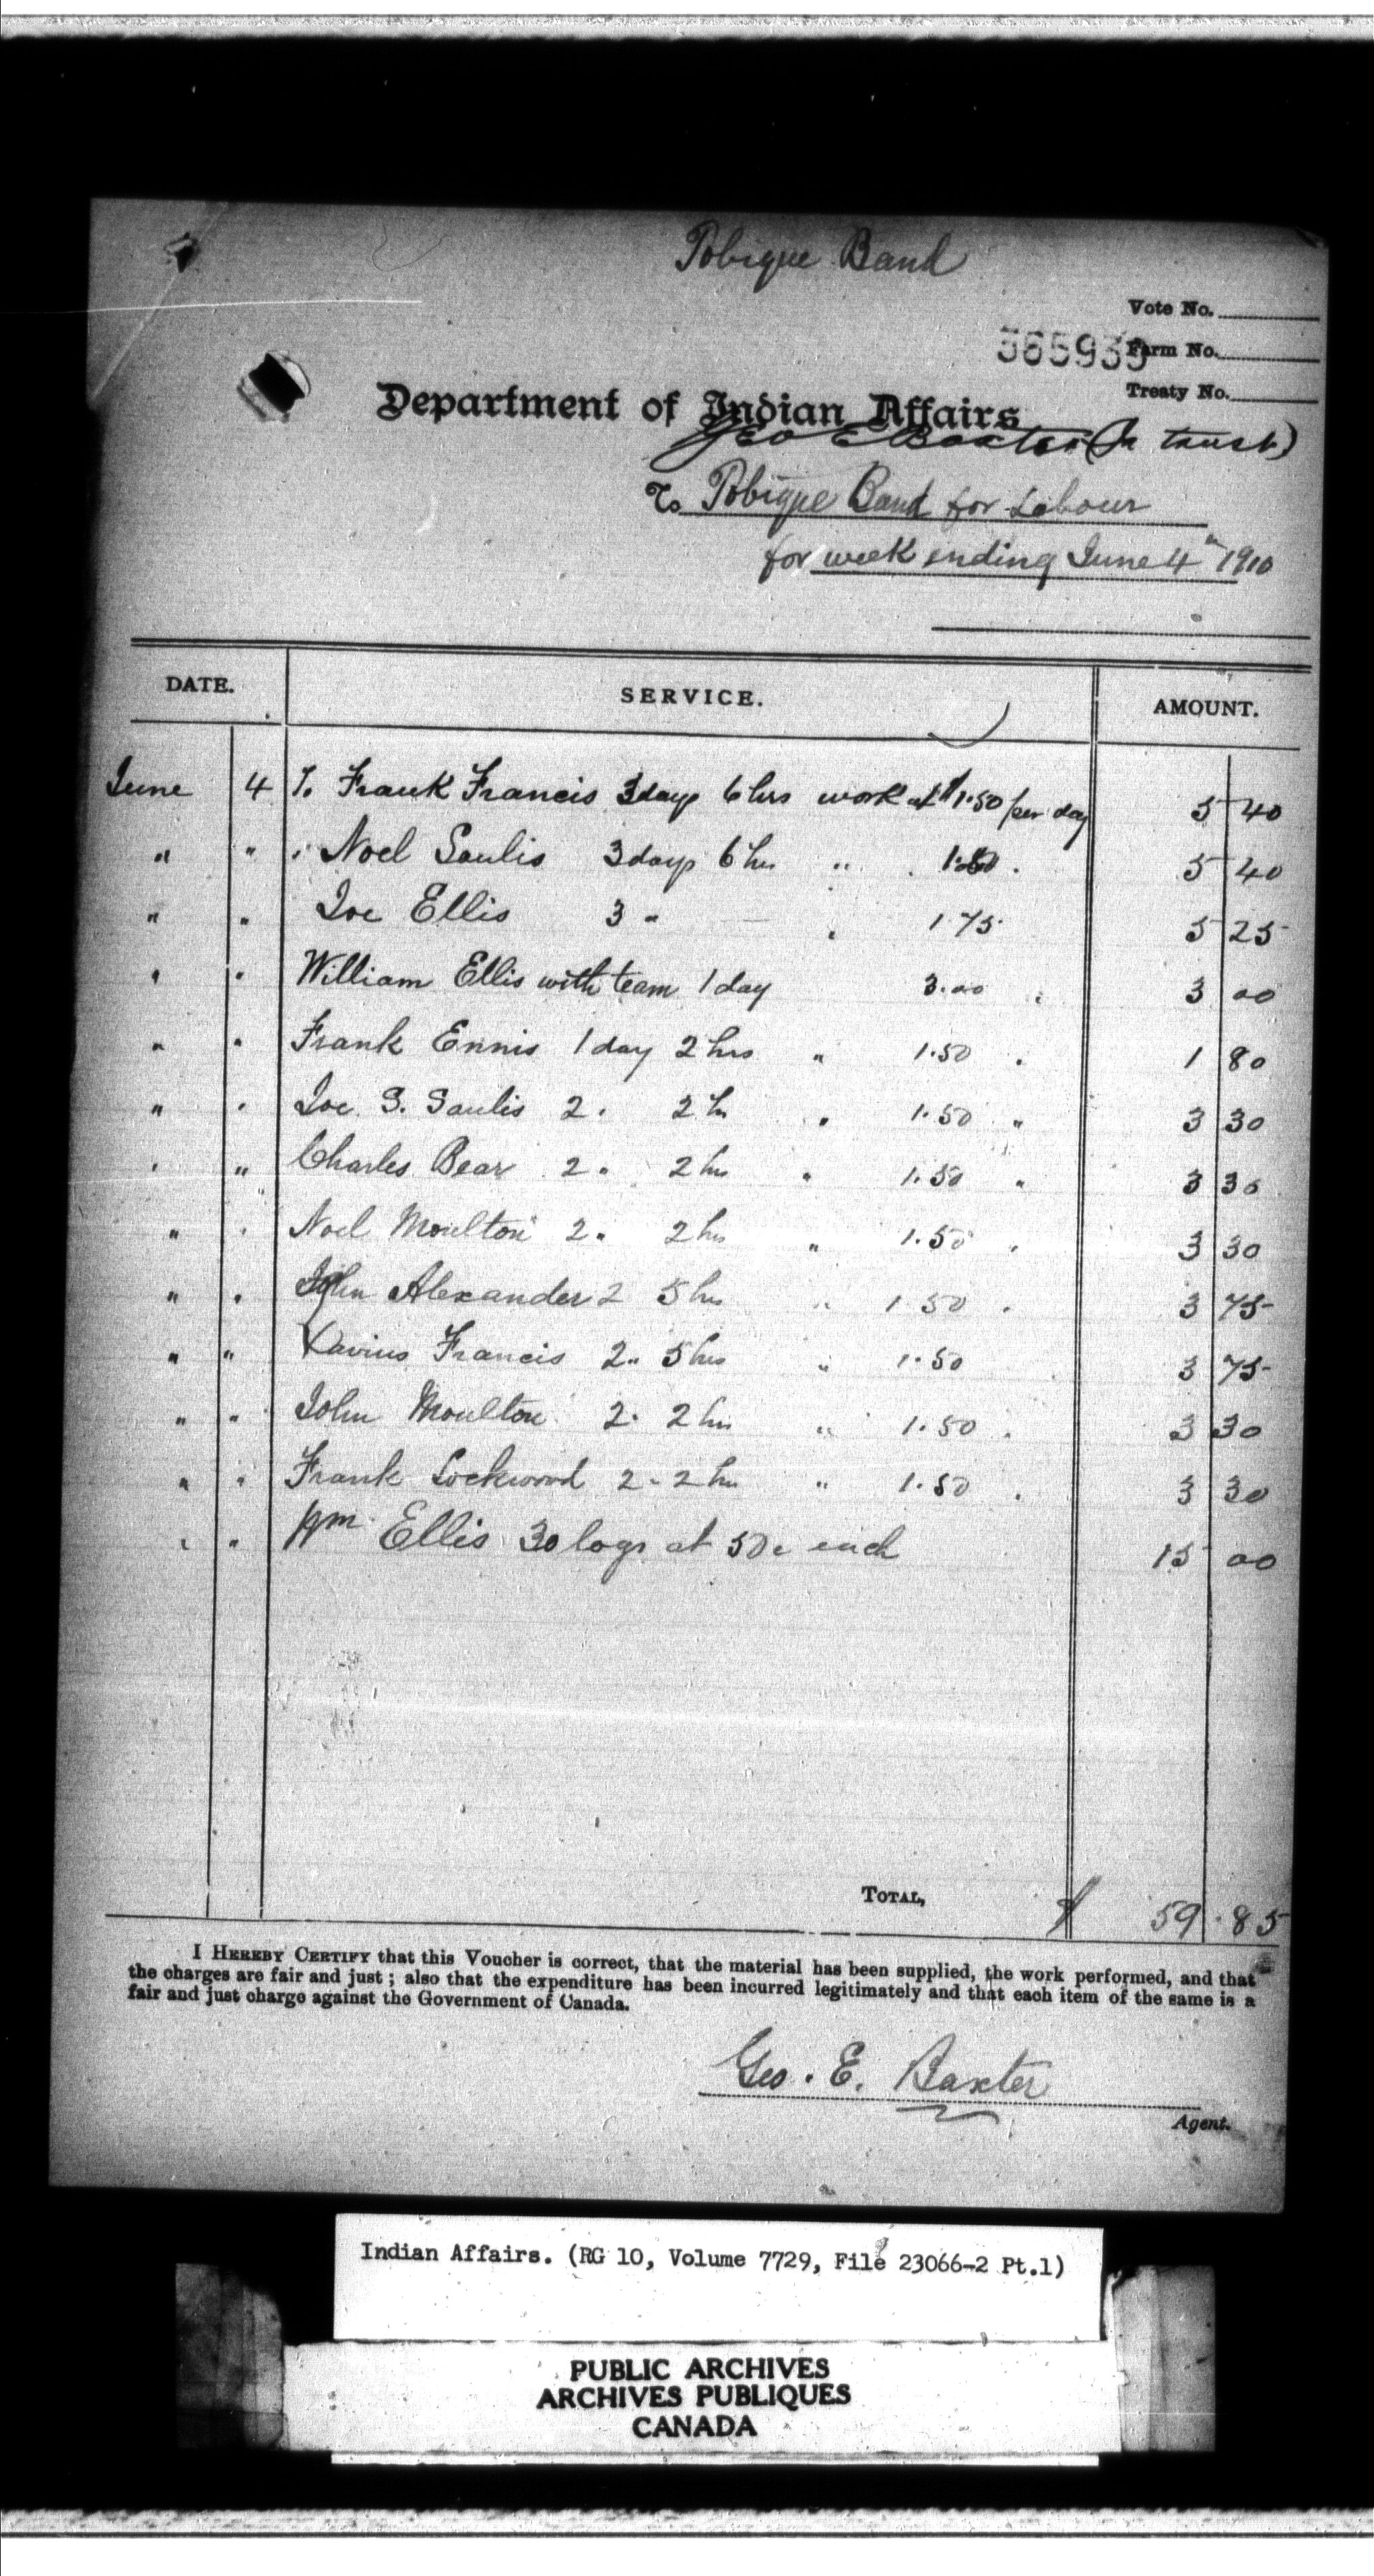 Tobique Band
Vote No.
365939
Farm No.
Treaty No.
Department of Indian Affairs
Geo E Baxter (In trust)
To Tobique Band for Labour
for week ending June 4th 1910
DATE. SERVICE. AMOUNT.
June 4 To Frank Francis 3 days 6 hrs work at $1.50 per day 5 40
" " " Noel Saulis 3 days 6 hrs " 1.50 " 5 40
" " Joe Ellis 3 " " 1 75 5 25
" " William Ellis with team 1 day 3.00 " 3 00
" " Frank Ennis 1 day 2 hrs " 1.50 " 1 80
" " Joe S. Saulis 2 " 2 hrs " 1.50 " 3 30
" " Charles Bear 2 " 2 hrs " 1.50 " 3 30
" " Noel Moulton 2 " 2 hrs " 1.50 " 3 30
" " John Alexander 2 5 hrs " 1 50 " 3 75
" " Xavius Francis 2 " 5 hrs " 1.50 3 75
" " John Moulton 2 " 2 hrs " 1.50 " 3 30
" " Frank Lockwood 2 " 2 hrs " 1.50 " 3 30
" " Wm Ellis 30 logs at 50c each 15 00
TOTAL, $ 59.85
I HEREBY CERTIFY that this Voucher is correct, that the material has been supplied, the work performed, and that
the charges are fair and just; also that the expenditure has been incurred legitimately and that each item of the same is a
fair and just charge against the Government of Canada.
Geo. E. Baxter
Agent.
Indian Affairs. (RG 10, Volume 7729, File 23066-2 Pt.1)
PUBLIC ARCHIVES
ARCHIVES PUBLIQUES
CANADA